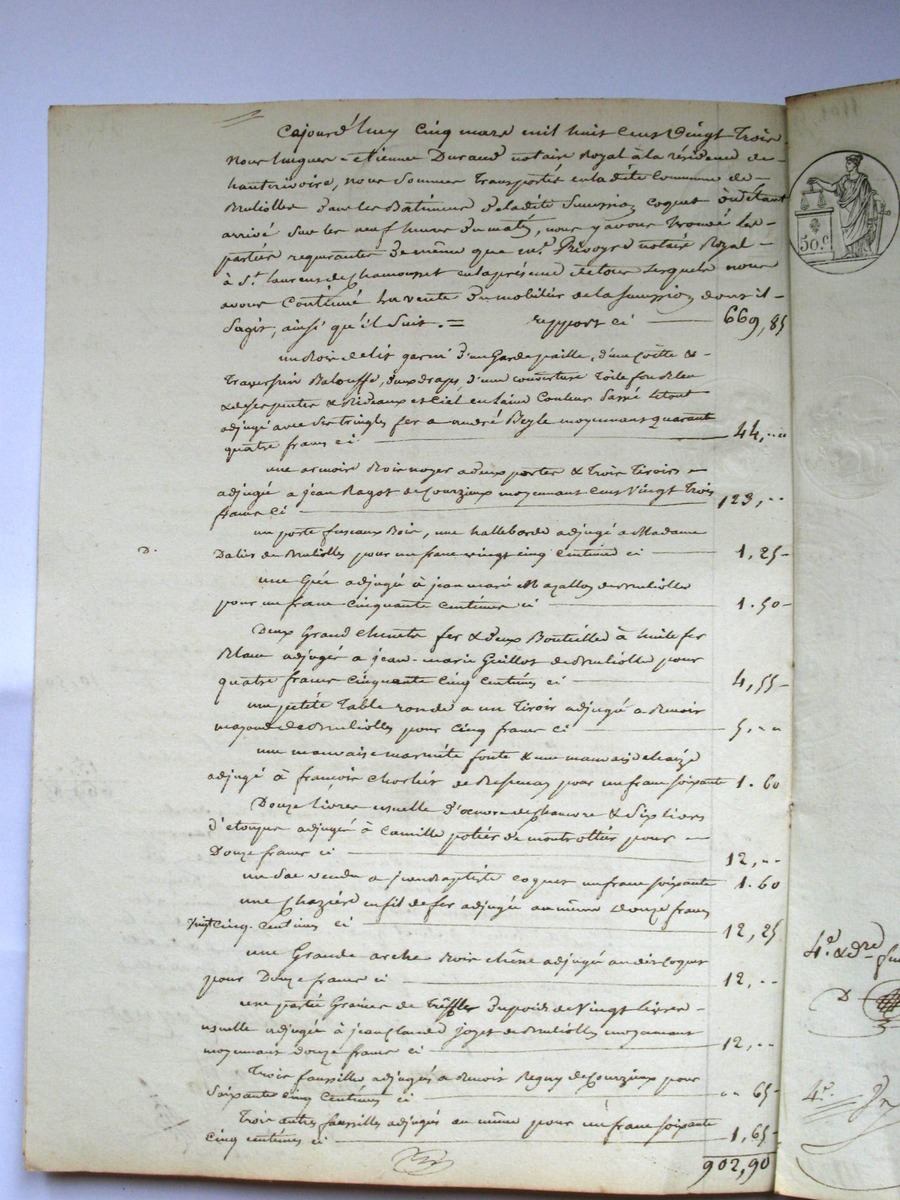 Cejourd'huy cinq mars mil huit cent vingt trois
nous hugues-etienne Durand notaire Royal à la résidence de
hauterivoire, nous sommes transporté en la dite Commune de
Brulliolles dans les Bâtiments de la dite Succession Coquet où étant
arrivé sur les neuf heures du matin, nous y avons trouvé les
parties requerantes de même que me. notaire Royal
à St. laurent de Chamousset en la présence de tous lesquels nous
avons Continué la vente du mobilier de la Succession dont il
s'agit, ainsi qu'il suit. = repport ci 669,85
un Bois de lit garni d'un Garde paille, d'une Coëtte &
Traversin Balouffe, deux draps, d'une couverture toile fond bleu
& de serpentes & Rideaux et Ciel en laine Couleur le tout
adjugé avec ses tringles fer a andré Beyle moyennant quarante
quatre francs ci 44,..
une armoire Bois noyer a deux portes & trois tiroirs
adjugé a jean Ragot de Courzieux moyennant Cent vingt trois
francs Ci 123,..
un porte fuseaux Bois, une hallebarde adjugé a Madame
D. Dalis de Brulliolles pour un franc vingt cinq Centimes ci 1,25
une épée adjugé à jean marie Mazallon de Brulliolle
pour un franc cinquante centimes ci 1.50
Deux Grand Chenets fer & deux Bouteilles à huile fer
Blanc adjugés a jean-marie Guillot de Brulliolle pour
quatre francs cinquante cinq Centimes ci 4,55
une petite Table ronde a un Tiroir adjugé a Benoit
de Brulliolles pour Cinq francs ci 5,..
une mauvaise marmite fonte & une mauvaise chaize
adjugé à françois de pour un franc soixante 1.60
Douze livres usuelle d'oeuvre de chanvre & six livres
d'étoupe adjugés à Camille potier de montrottier pour
Douze francs ci 12,..
un sac vendu a jean Baptiste Coquet un franc soixante 1.60
une en fil de fer adjugée au même Douze francs
vingt cinq Centimes ci 12,25
une Grande arche Bois chêne adjugée au dit Coquet
pour Douze francs ci 12,..
une partie Graines de Treffles du poids de vingt livres
usuelle adjugée à jean Claude de Brulliolles moyennant
moyennant douze francs ci 12,..
Trois faussilles adjugés a Benoit Regny de Courzieux pour
Soixante cinq Centimes ci .. 65
Trois autres faussilles adjugés au même pour un franc soixante
cinq centimes ci 1,65
902,90
50 c.
4e. & dre
D
4e.